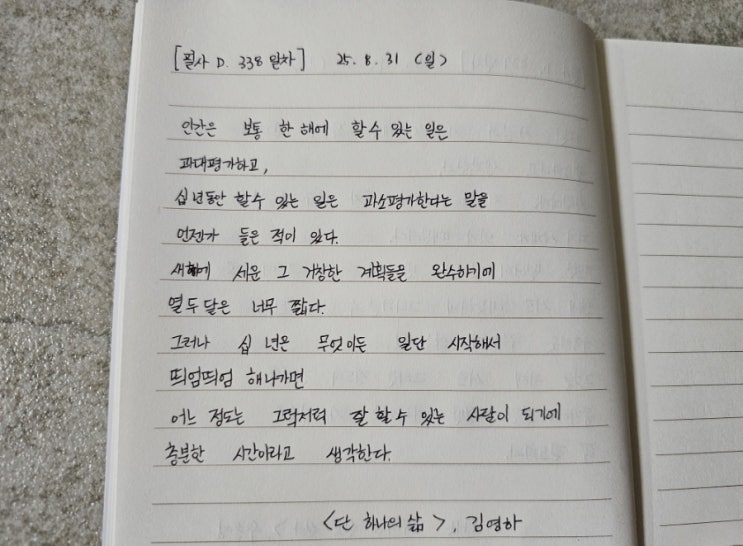 [필사 D. 338일차] 25. 8. 31 (일)
인간은 보통 한 해에 할 수 있는 일은
과대평가하고,
십 년동안 할 수 있는 일은 과소평가한다는 말을
언젠가 들은 적이 있다.
새해에 세운 그 거창한 계획들을 완수하기에
열두 달은 너무 짧다.
그러나 십 년은 무엇이든 일단 시작해서
띄엄띄엄 해나가면
어느 정도는 그럭저럭 잘 할 수 있는 사람이 되기에
충분한 시간이라고 생각한다.
<단 하나의 삶>, 김영하